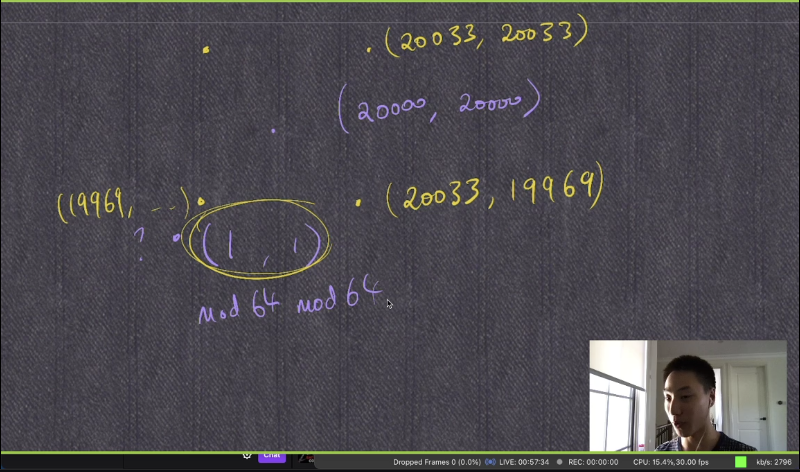 (20033, 20033)
(20000, 20000)
(19969, --)
(20033, 19969)
? (1, 1)
mod 64 mod 64
Chat
Dropped Frames 0 (0.0%) LIVE: 00:57:34 REC: 00:00:00 CPU: 15.4%,30.00 fps kb/s: 2796